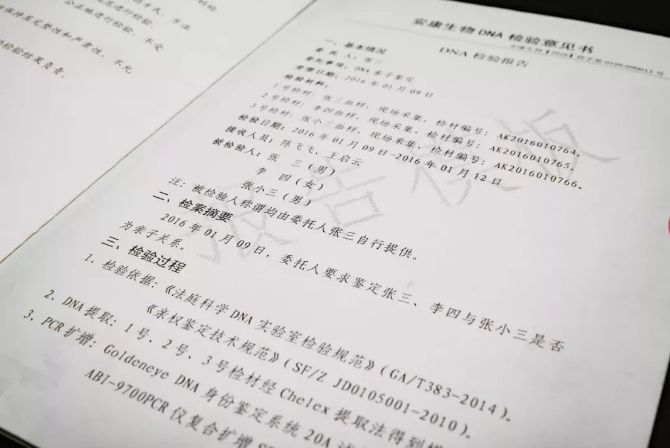 安康生物DNA检验意见书
DNA检验报告
一、基本情况
委托人：张三
委托事项：DNA亲子鉴定
受理日期：2016年01月09日
检验材料：
1号检材：张三血样，现场采集，检材编号：AK2016010764。
2号检材：李四血样，现场采集，检材编号：AK2016010765。
3号检材：张小三血样，现场采集，检材编号：AK2016010766。
检验日期：2016年01月09日-2016年01月12日
接收人员：陈飞飞、王启云
被检验人：张 三（男）
李 四（女）
张小三（男）
注：被检验人称谓均由委托人张三自行提供。
二、检案摘要
2016年01月09日，委托人要求鉴定张三、李四与张小三是否
为亲子关系。
三、检验过程
1、检验依据：《法庭科学DNA实验室检验规范》（GA/T383-2014）。
《亲权鉴定技术规范》（SF/Z JD0105001-2010）。
2、DNA提取：1号、2号、3号检材经Chelex提取法得到模
3、PCR扩增：Goldeneye DNA身份鉴定系统20A试
ABI-9700PCR仪复合扩增
报告模版